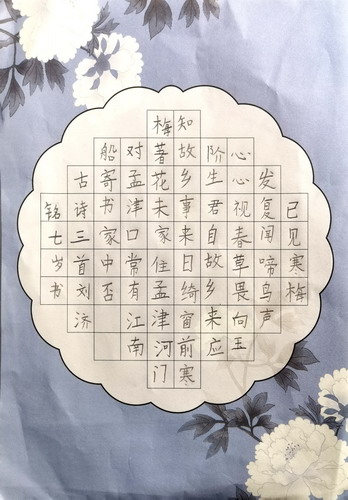 已见寒梅
发复闻啼鸟声
心心视春草畏向玉
阶生君自故乡来应
知故乡事来日绮窗前寒
梅著花未家住孟津河门
对孟津口常有江南
船寄书家中否
古诗三首刘济
铭七岁书